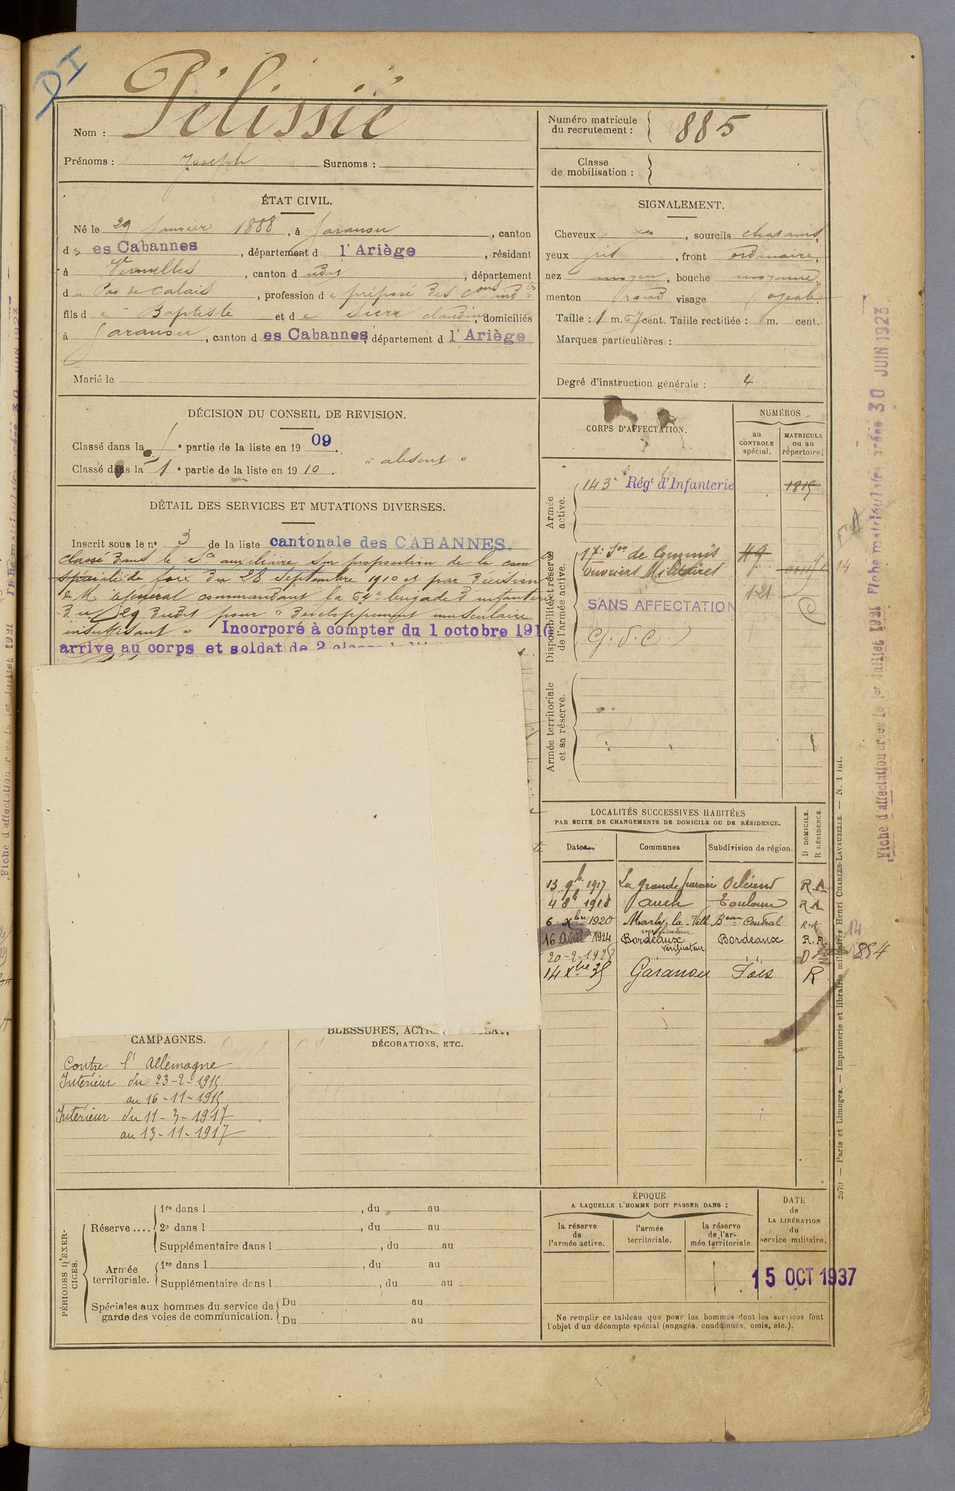 DI
Nom : Pélissié
Prénoms : Joseph Surnoms :
Numéro matricule du recrutement : 885
Classe de mobilisation :
ÉTAT CIVIL.
Né le 29 Janvier 1888, à Garanou, canton
d es Cabannes, département d l'Ariège, résidant
à Vermelles, canton d udit, département
d u Pas de Calais, profession d e préposé des
fils d e Baptiste et d e Sicre Claudine domiciliés
à Garanou, canton d es Cabannes, département d l'Ariège
Marié le
SIGNALEMENT.
Cheveux, sourcils chatains,
yeux gris, front ordinaire,
nez moyen, bouche moyenne,
menton rond visage
Taille : 1 m. 67 cent. Taille rectifiée : m. cent.
Marques particulières :
Degré d'instruction générale : 4
DÉCISION DU CONSEIL DE REVISION.
Classé dans la 1e partie de la liste en 1909
Classé dans la 1e partie de la liste en 1910. "absent"
DÉTAIL DES SERVICES ET MUTATIONS DIVERSES.
Inscrit sous le n° 3 de la liste cantonale des CABANNES.
Classé dans le Sce auxiliaire sur proposition de la com
spéciale de fore du 28 Septembre 1910 et par décision
de M. le général commandant la 64e brigade d'infanterie
du 29 dudit pour "développement musculaire
insuffisant" Incorporé à compter du 1 octobre 1910
arrivé au corps et soldat de 2 classe
CORPS D'AFFECTATION.
NUMÉROS
au CONTROLE spécial.
MATRICULE ou au répertoire.
Armée active.
143e Régt d'Infanterie 1815
Disponibilité et réserve de l'armée active.
17e Son de Commis
ouvriers Mres
121
14
SANS AFFECTATION
(G.V.C.)
Armée territoriale et sa réserve.
LOCALITÉS SUCCESSIVES HABITÉES
PAR SUITE DE CHANGEMENTS DE DOMICILE OU DE RÉSIDENCE.
Dates Communes Subdivision de région. D DOMICILE. R RÉSIDENCE.
13 9bre 1917 La Grande Paroisse Orléans R.A
4 8bre 1918 Auch Toulouse R.A
6 Xbre 1920 Marly-la-Ville Beau Central R.A
16 1924 Bordeaux Bordeaux R.A
vérificateur
20-2-1928 vérificateur D
14 Xbre 35 Garanou Foix R
884
CAMPAGNES.
Contre l'Allemagne
Intérieur du 23-2-1915
au 16-11-1915
Intérieur du 11-3-1917
au 13-11-1917
BLESSURES,
DÉCORATIONS, ETC.
PÉRIODES D'EXERCICES.
Réserve .... 1re dans l , du au
2e dans l , du au
Supplémentaire dans l , du au
Armée territoriale. 1re dans l , du au
Supplémentaire dans l , du au
Spéciales aux hommes du service de garde des voies de communication. Du au
Du au
ÉPOQUE
A LAQUELLE L'HOMME DOIT PASSER DANS :
la réserve de l'armée active.
l'armée territoriale.
la réserve de l'armée territoriale.
DATE de LA LIBÉRATION du service militaire.
15 OCT 1937
Ne remplir ce tableau que pour les hommes dont les services font l'objet d'un décompte spécial (engagés, condamnés, omis, etc.).
2079 — Paris et Limoges. — Imprimerie et librairie militaires Henri CHARLES-LAVAUZELLE. — N. 1 int.
Fiche d'affectation créée le 1er Juillet 1921 Fiche matriculaire créée 30 JUIN 1923